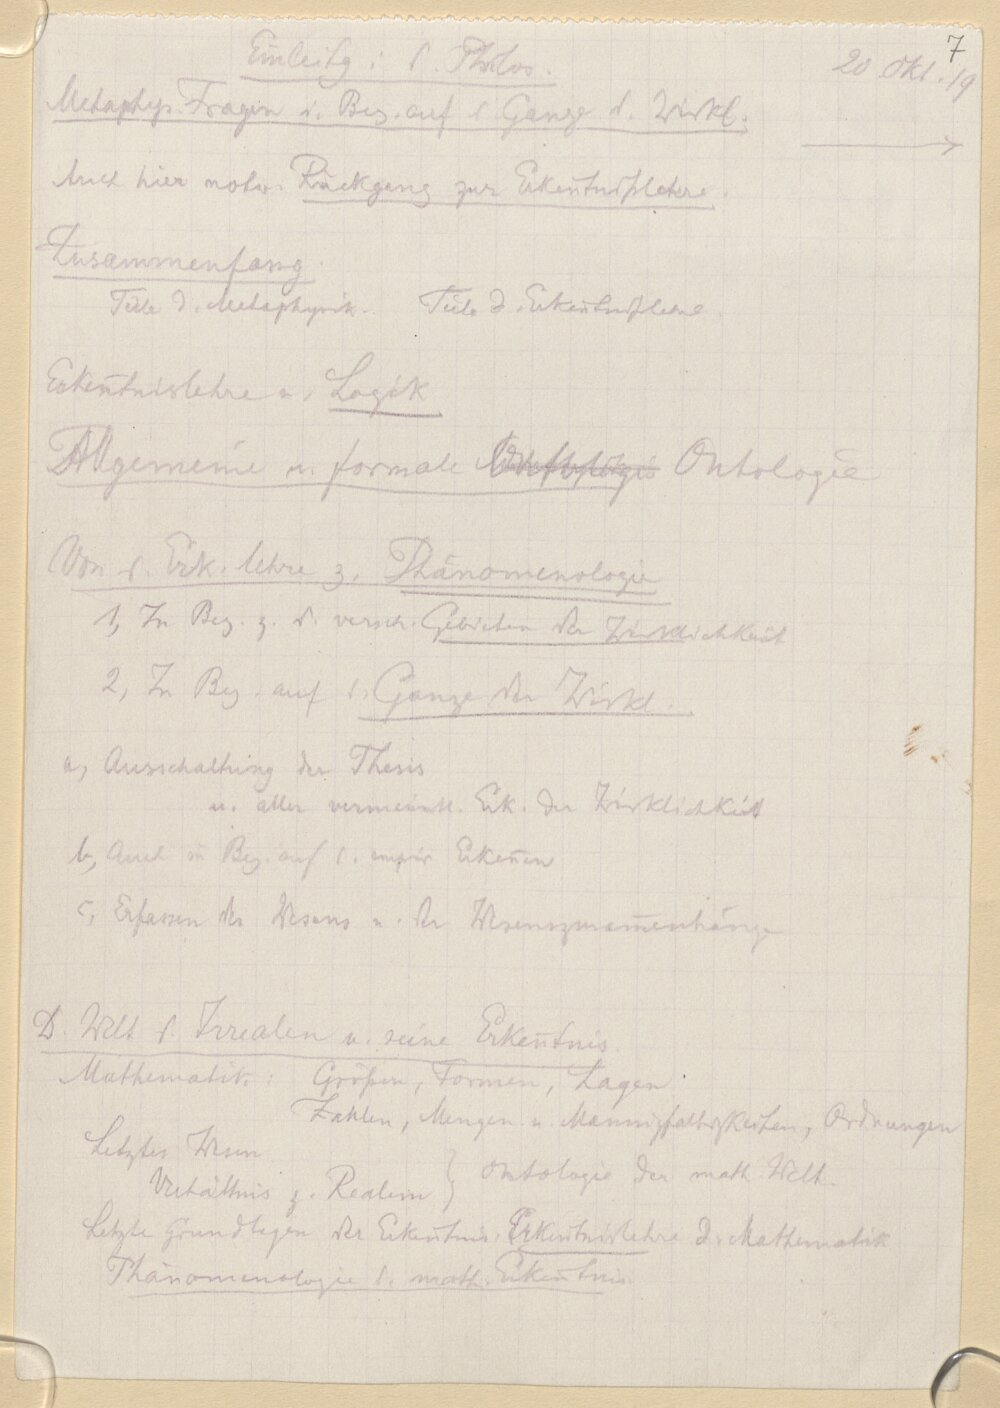 7
Einleitg i. d. Philos.
20 Okt. 19
Metaphys. Fragen i. Bez. auf d. Ganze d. Wirkl.
Auch hier notw. Rückgang zur Erkenntnißlehre.
Zusammenfassg
Teile d. Metaphysik. Teile d. Erkenntnißlehre
Erkenntnislehre u. Logik
Allgemeine u. formale Ontologie
Von d. Erk. lehre z. Phänomenologie
1, In Bez. z. d. versch. Gebieten der Wirklichkeit
2, In Bez. auf d. Ganze der Wirkl.
a, Ausschaltung der Thesis
u. aller vermeintl. Erk. der Wirklichkeit
b, Auch in Bez. auf d. empir Erkennen
c, Erfassen des Wesens u. der Wesenszusammenhänge
D. Welt d. Irrealen u. seine Erkenntnis.
Mathematik: Größen, Formen, Lagen.
Zahlen, Mengen u. Mannigfaltigkeiten, Ordnungen
Letztes Wesen
Verhältnis z. Realem } Ontologie der math. Welt.
Letzte Grundlagen der Erkenntnis. Erkenntnislehre d. Mathematik
Phänomenologie d. math. Erkenntnis.